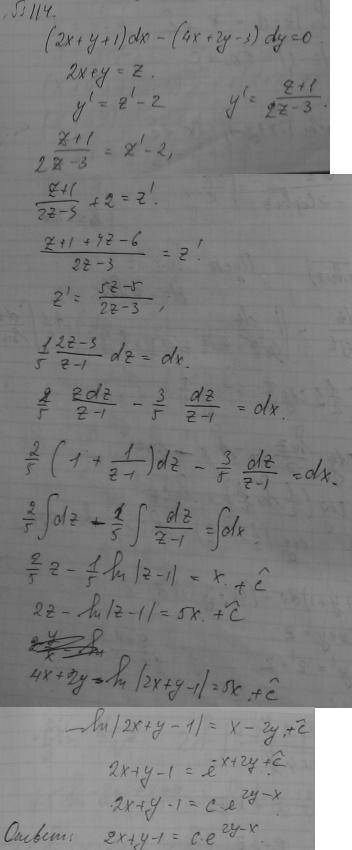 №114.
(2x+y+1)dx - (4x+2y-3)dy=0
2x+y = z.
y' = z'-2    y' = (z+1)/(2z-3).
(z+1)/(2z-3) = z'-2,
(z+1)/(2z-3) + 2 = z'.
(z+1+4z-6)/(2z-3) = z'.
z' = (5z-5)/(2z-3),
1/5 (2z-3)/(z-1) dz = dx.
2/5 zdz/(z-1) - 3/5 dz/(z-1) = dx.
2/5 (1 + 1/(z-1))dz - 3/5 dz/(z-1) = dx.
2/5 ∫dz - 1/5 ∫ dz/(z-1) = ∫dx
2/5 z - 1/5 ln|z-1| = x + ĉ
2z - ln|z-1| = 5x + ĉ
4x+2y - ln|2x+y-1| = 5x + ĉ
-ln|2x+y-1| = x-2y+ĉ
2x+y-1 = e^(-x+2y+ĉ)
2x+y-1 = c·e^(2y-x)
Ответ: 2x+y-1 = c·e^(2y-x).